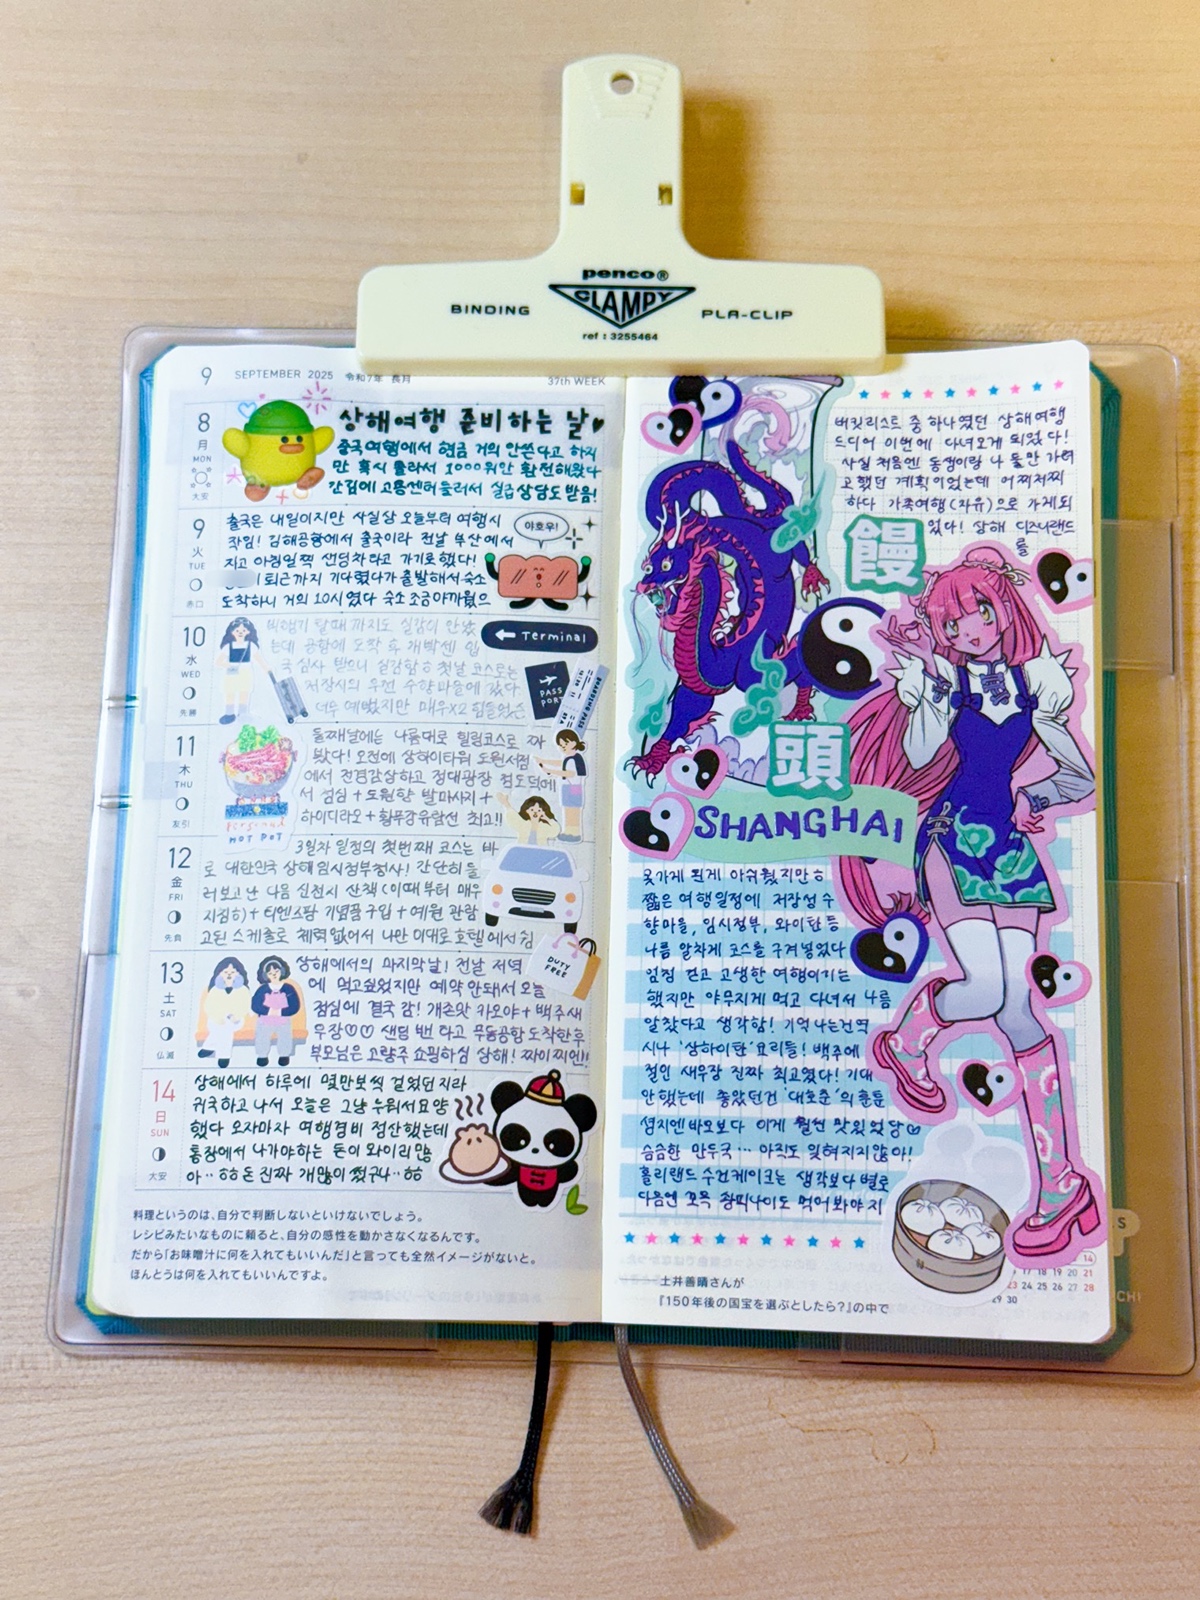 penco®
CLAMPY
BINDING
PLA-CLIP
ref : 3255464
9 SEPTEMBER 2025 令和7年 長月
37th WEEK
8
月
MON
大安
상해여행 준비하는 날♥
중국여행에서 현금 거의 안쓴다고 하지
만 혹시 몰라서 1000위안 환전해왔다
간김에 고용센터 들러서 실급상담도 받음!
9
火
TUE
赤口
출국은 내일이지만 사실상 오늘부터 여행시
작임! 김해공항에서 출국이라 전날 부산에서
자고 아침일찍 샌딩차타고 가기로했다!
퇴근까지 기다렸다가 출발해서 숙소
도착하니 거의 10시였다 숙소 조금야까웠으
야호우!
10
水
WED
先勝
비행기 탈때까지도 실감이 안났
는데 공항에 도착 후 개빡센 입
국심사 받으니 실감함ㅎ 첫날 코스로는
저장시의 우전 수향마을에 갔다
너무 예뻤지만 매우x2 힘들었슨
← Terminal
PASSPORT
11
木
THU
友引
둘째날에는 나름대로 힐링코스로 짜
봤다! 오전에 상하이타워 도원서점
에서 전경감상하고 정대광장 점도덕에
서 점심 + 도원향 발마사지 +
하이디라오 + 황푸강유람선 최고!!
Personal
HOT POT
12
金
FRI
先負
3일차 일정의 첫번째 코스는 바
로 대한민국 상해임시정부청사! 간단히 둘
러보고 난 다음 신천지 산책(이때부터 매우
지침ㅎ) + 티엔즈팡 기념품구입 + 예원 관람
고된 스케줄로 체력없어서 나만 이대로 호텔에서 쉼
DUTY FREE
13
土
SAT
仏滅
상해에서의 마지막날! 전날 저녁
에 먹고싶었지만 예약 안돼서 오늘
점심에 결국 감! 개존맛 카오야 + 백주새
우장♡♡ 샌딩 밴 타고 푸동공항 도착한후
부모님은 고량주 쇼핑하심 상해! 짜이찌엔!!
14
日
SUN
大安
상해에서 하루에 몇만보씩 걸었던지라
귀국하고 나서 오늘은 그냥 푸워서요양
했다 오자마자 여행경비 정산했는데
통장에서 나가야하는 돈이 와이리 많
아‥ㅎㅎ 돈 진짜 개많이 썼구나‥ㅎㅎ
料理というのは、自分で判断しないといけないでしょう。
レシピみたいなものに頼ると、自分の感性を動かさなくなるんです。
だから「お味噌汁に何を入れてもいいんだ」と言っても全然イメージがないと。
ほんとうは何を入れてもいいんですよ。
버킷리스트 중 하나였던 상해여행
드디어 이번에 다녀오게 되었다!
사실 처음엔 동생이랑 나 둘만 가려
고했던 계획이었는데 어찌저찌
하다 가족여행(자유)으로 가게되
었다! 상해 디즈니랜드
를
饅
頭
SHANGHAI
못가게 된게 아쉬웠지만ㅎ
짧은 여행일정에 저장성 수
향마을, 임시정부, 와이탄 등
나름 알차게 코스를 구겨넣었다
엄청 걷고 고생한 여행이기는
했지만 야무지게 먹고 다녀서 나름
알찼다고 생각함! 기억나는건 역
시나 '상하이탄' 요리들! 백주에
절인 새우장 진짜 최고였다! 기대
안했는데 좋았던건 '대호춘'의 훈툰
셩지엔바오보다 이게 훨씬 맛있었당♡
슴슴한 만두국… 아직도 잊혀지지않아!
홀리랜드 수건케이크는 생각보다 별로
다음엔 꼬옥 량피나이도 먹어봐야지
土井善晴さんが
『150年後の国宝を選ぶとしたら？』の中で
14
17 18 19 20 21
23 24 25 26 27 28
29 30